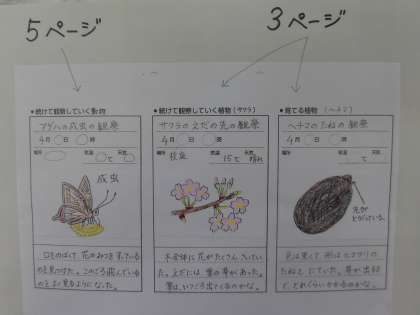 5ページ
3ページ
●続けて観察していく動物
アゲハの成虫の観察
4月○日 ○時
場所 気温 天気
○℃ ○
成虫
口をのばして花のみつをすっている
のを見つけた。このごろ飛んでいる
のをよく見るようになった。
●続けて観察していく植物(サクラ)
サクラのえだの先の観察
4月○日 ○時
場所 気温 天気
校庭 15℃ 晴れ
木全体に花がたくさんさいてい
た。えだには、葉の芽があった。
葉は、いつごろ出てくるのかな。
●育てる植物(ヘチマ)
ヘチマのたねの観察
4月○日 ○時
場所 気温 天気
℃
先が
とがっている。
色は黒くて、形はヒマワリの
たねとにていた。芽が出るま
で、どれくらいかかるのかな。